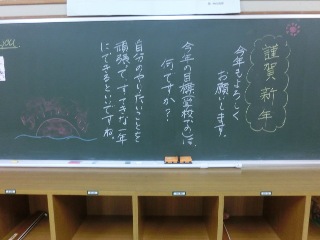 謹賀新年
今年もよろしく
お願いします。
今年の目標(学校での)は、
何ですか？
自分のやりたいことを
頑張って すてきな一年
にできるといいですね。
you